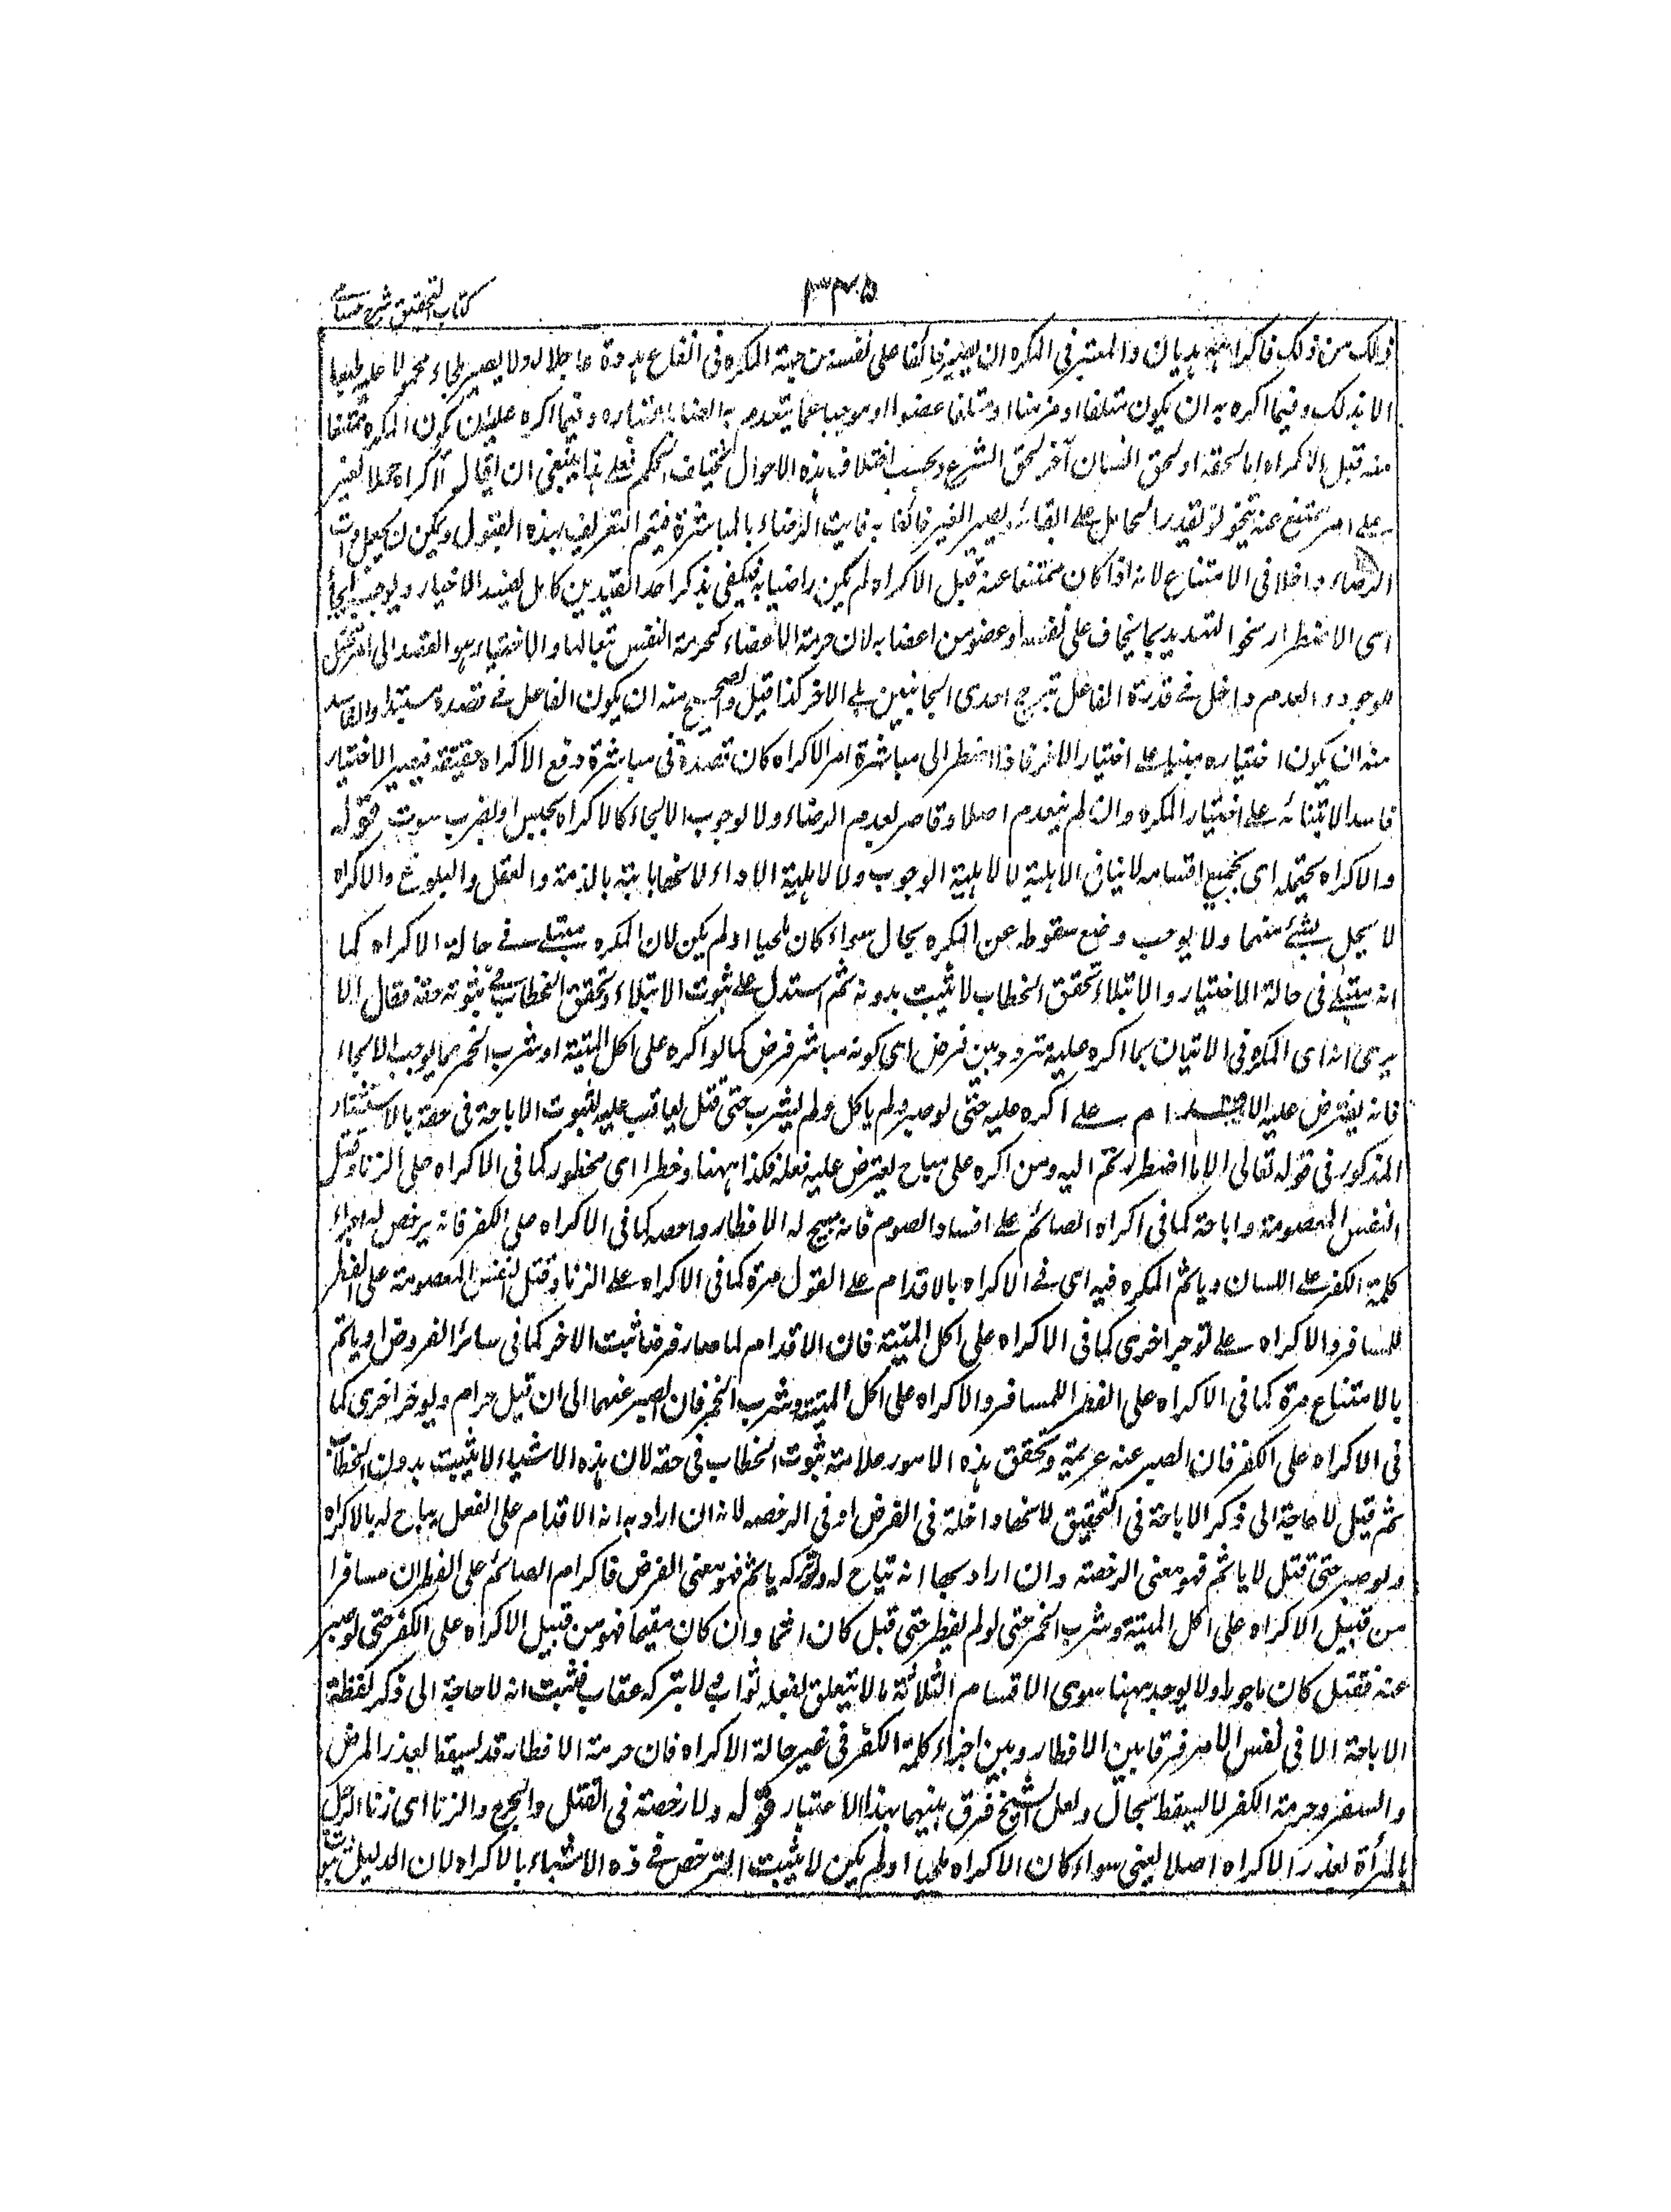 كتاب التحقيق شرح حسامى
٣٤٥
ذلك من ذلك فاكراهه هذيان والمعتبر فى المكره ان يصير خائفا على نفسه من جهة المكره فى ايقاع ما هدده عاجلا لانه لا يصير ملجاء محمولا عليه طبعا
الا بذلك وفيما اكره به ان يكون متلفا او مزمنا او متلفا عضوا او موجبا غما يعدم الرضاء باعتباره وفيما اكره عليه ان يكون المكره ممتنعا
منه قبل الاكراه اما لحقه او لحق انسان آخر او لحق الشرع وبحسب اختلاف هذه الاحوال يختلف الحكم فعلى هذا ينبغى ان يقال الاكراه حمل الغير
على امر يمتنع عنه بتخويف يقدر الحامل على ايقاعه ويصير الغير خائفا به فايت الرضاء بالمباشرة فيتم التعريف بهذه القيود ويمكن ان يجعل فوات
الرضاء داخلا فى الامتناع لانه اذا كان ممتنعا عنه قبل الاكراه لم يكن راضيا به فيكفى بذكر احد القيدين كامل يفسد الاختيار ويوجب الالجاء
اى الاضطرار نحو التهديد بما يخاف على نفسه او عضو من اعضايه لان حرمة الاعضاء كحرمة النفس تبعا لها والاختيار هو القصد الى امر متردد
الوجود والعدم داخل فى قدرة الفاعل بترجيح احدى الجانبين على الاخر كذا قيل والصحيح منه ان يكون الفاعل فى قصده مستبدا والفاسد
منه ان يكون اختياره مبنيا على اختيار الاخر فاذا اضطر الى مباشرة امر الاكراه كان قصده فى مباشرة دفع الاكراه حقيقة فيصير الاختيار
فاسدا لابتنائه على اختيار المكره وان لم ينعدم اصلا وقاصر يعدم الرضاء ولا يوجب الالجاء كالاكراه بحبس او بضرب سوت قوله
والاكراه بجملته اى بجميع اقسامه لا ينافى الاهلية لا لاهلية الوجوب ولا لاهلية الاداء لانها ثابتة بالذمة والعقل والبلوغ والاكراه
لا يخل بشئ منهما ولا يوجب وضع سقوطه عن المكره بحال سواء كان ملجيا او لم يكن لان المكره مبتلى فى حالة الاكراه كما
انه مبتلى فى حالة الاختيار والابتلاء تحقق الخطاب لا يثبت بدونه ثم استدل على ثبوت الابتلاء وتحقق الخطاب فى ثبوته حقه فقال الا
يرى انه اى المكره فى الاتيان بما اكره عليه متردد بين فرض اى كونه مباشر فرض كما لو اكره على اكل الميتة او شرب الخمر بما يوجب الالجاء
فانه يفترض عليه الاقدام على اكره عليه حتى لو صبر ولم ياكل ولم يشرب حتى قتل يعاقب عليه لثبوت الاباحة فى حقه بالاستثناء
المذكور فى قوله تعالى الا ما اضطررتم اليه ومن اكره على مباح يفترض عليه فعله فكذا ههنا وخطر اى محظور كما فى الاكراه على الزنا وقتل
النفس المعصومة واباحة كما فى اكراه الصائم على افساد الصوم فانه مبيح له الافطار ورخصة كما فى الاكراه على الكفر فانه يرخص له اجراء
كلمة الكفر على اللسان وياثم المكره فيه اى فى الاكراه بالاقدام على القول مرة كما فى الاكراه على الزنا وقتل النفس المعصومة على الفطر
للمسافر والاكراه على يوجر اخرى كما فى الاكراه على اكل الميتة فان الاقدام لما صار فرضا يثبت الاجر كما فى سائر الفروض وياثم
بالامتناع مرة كما فى الاكراه على الفطر للمسافر والاكراه على اكل الميتة وشرب الخمر فان الصبر عنهما الى ان قتل حرام ويوجر اخرى كما
فى الاكراه على الكفر فان الصبر عنه عزيمة وتحقق هذه الامور علامة ثبوت الخطاب فى حقه لان هذه الاشياء لا يثبت بدون الخطاب
ثم قيل لا حاجة الى ذكر الاباحة فى التحقيق لانها داخلة فى الفرض او فى الرخصه لانه ان اراد به انه الاقدام على الفعل يباح له بالاكراه
ولو صبر حتى قتل لا ياثم فهو معنى الرخصته وان اراد بها انه تباح له ولو تركه ياثم فهو معنى الفرض فاكراه الصائم على الفطر ان مسافرا
من قبيل الاكراه على اكل الميتة وشرب الخمر حتى لو لم يفطر حتى قبل كان اثما وان كان مقيما فهو من قبيل الاكراه على الكفر حتى لو صبر
عنه فقتل كان ماجورا ولا يوجد ههنا سوى الاقسام الثلاثة ما لا يتعلق بفعله ثواب ولا بتركه عقاب فثبت انه لا حاجة الى ذكر لفظة
الاباحة الا فى نفس الامر فرقا بين الافطار وبين اجراء كلمة الكفر فى غير حالة الاكراه فان حرمة الافطار قد يسقط بعذر المرض
والسفر وحرمة الكفر لا يسقط بحال ولعل الشيخ فرق بينهما بهذا الاعتبار قوله ولا رخصة فى القتل والجرح والزنا اى زنا الرجل
بالمرأة بعذر الاكراه اصلا يعنى سواء كان الاكراه ملجيا او لم يكن لا يثبت الترخص فى ذه الاشياء بالاكراه لان الدليل ثبوت